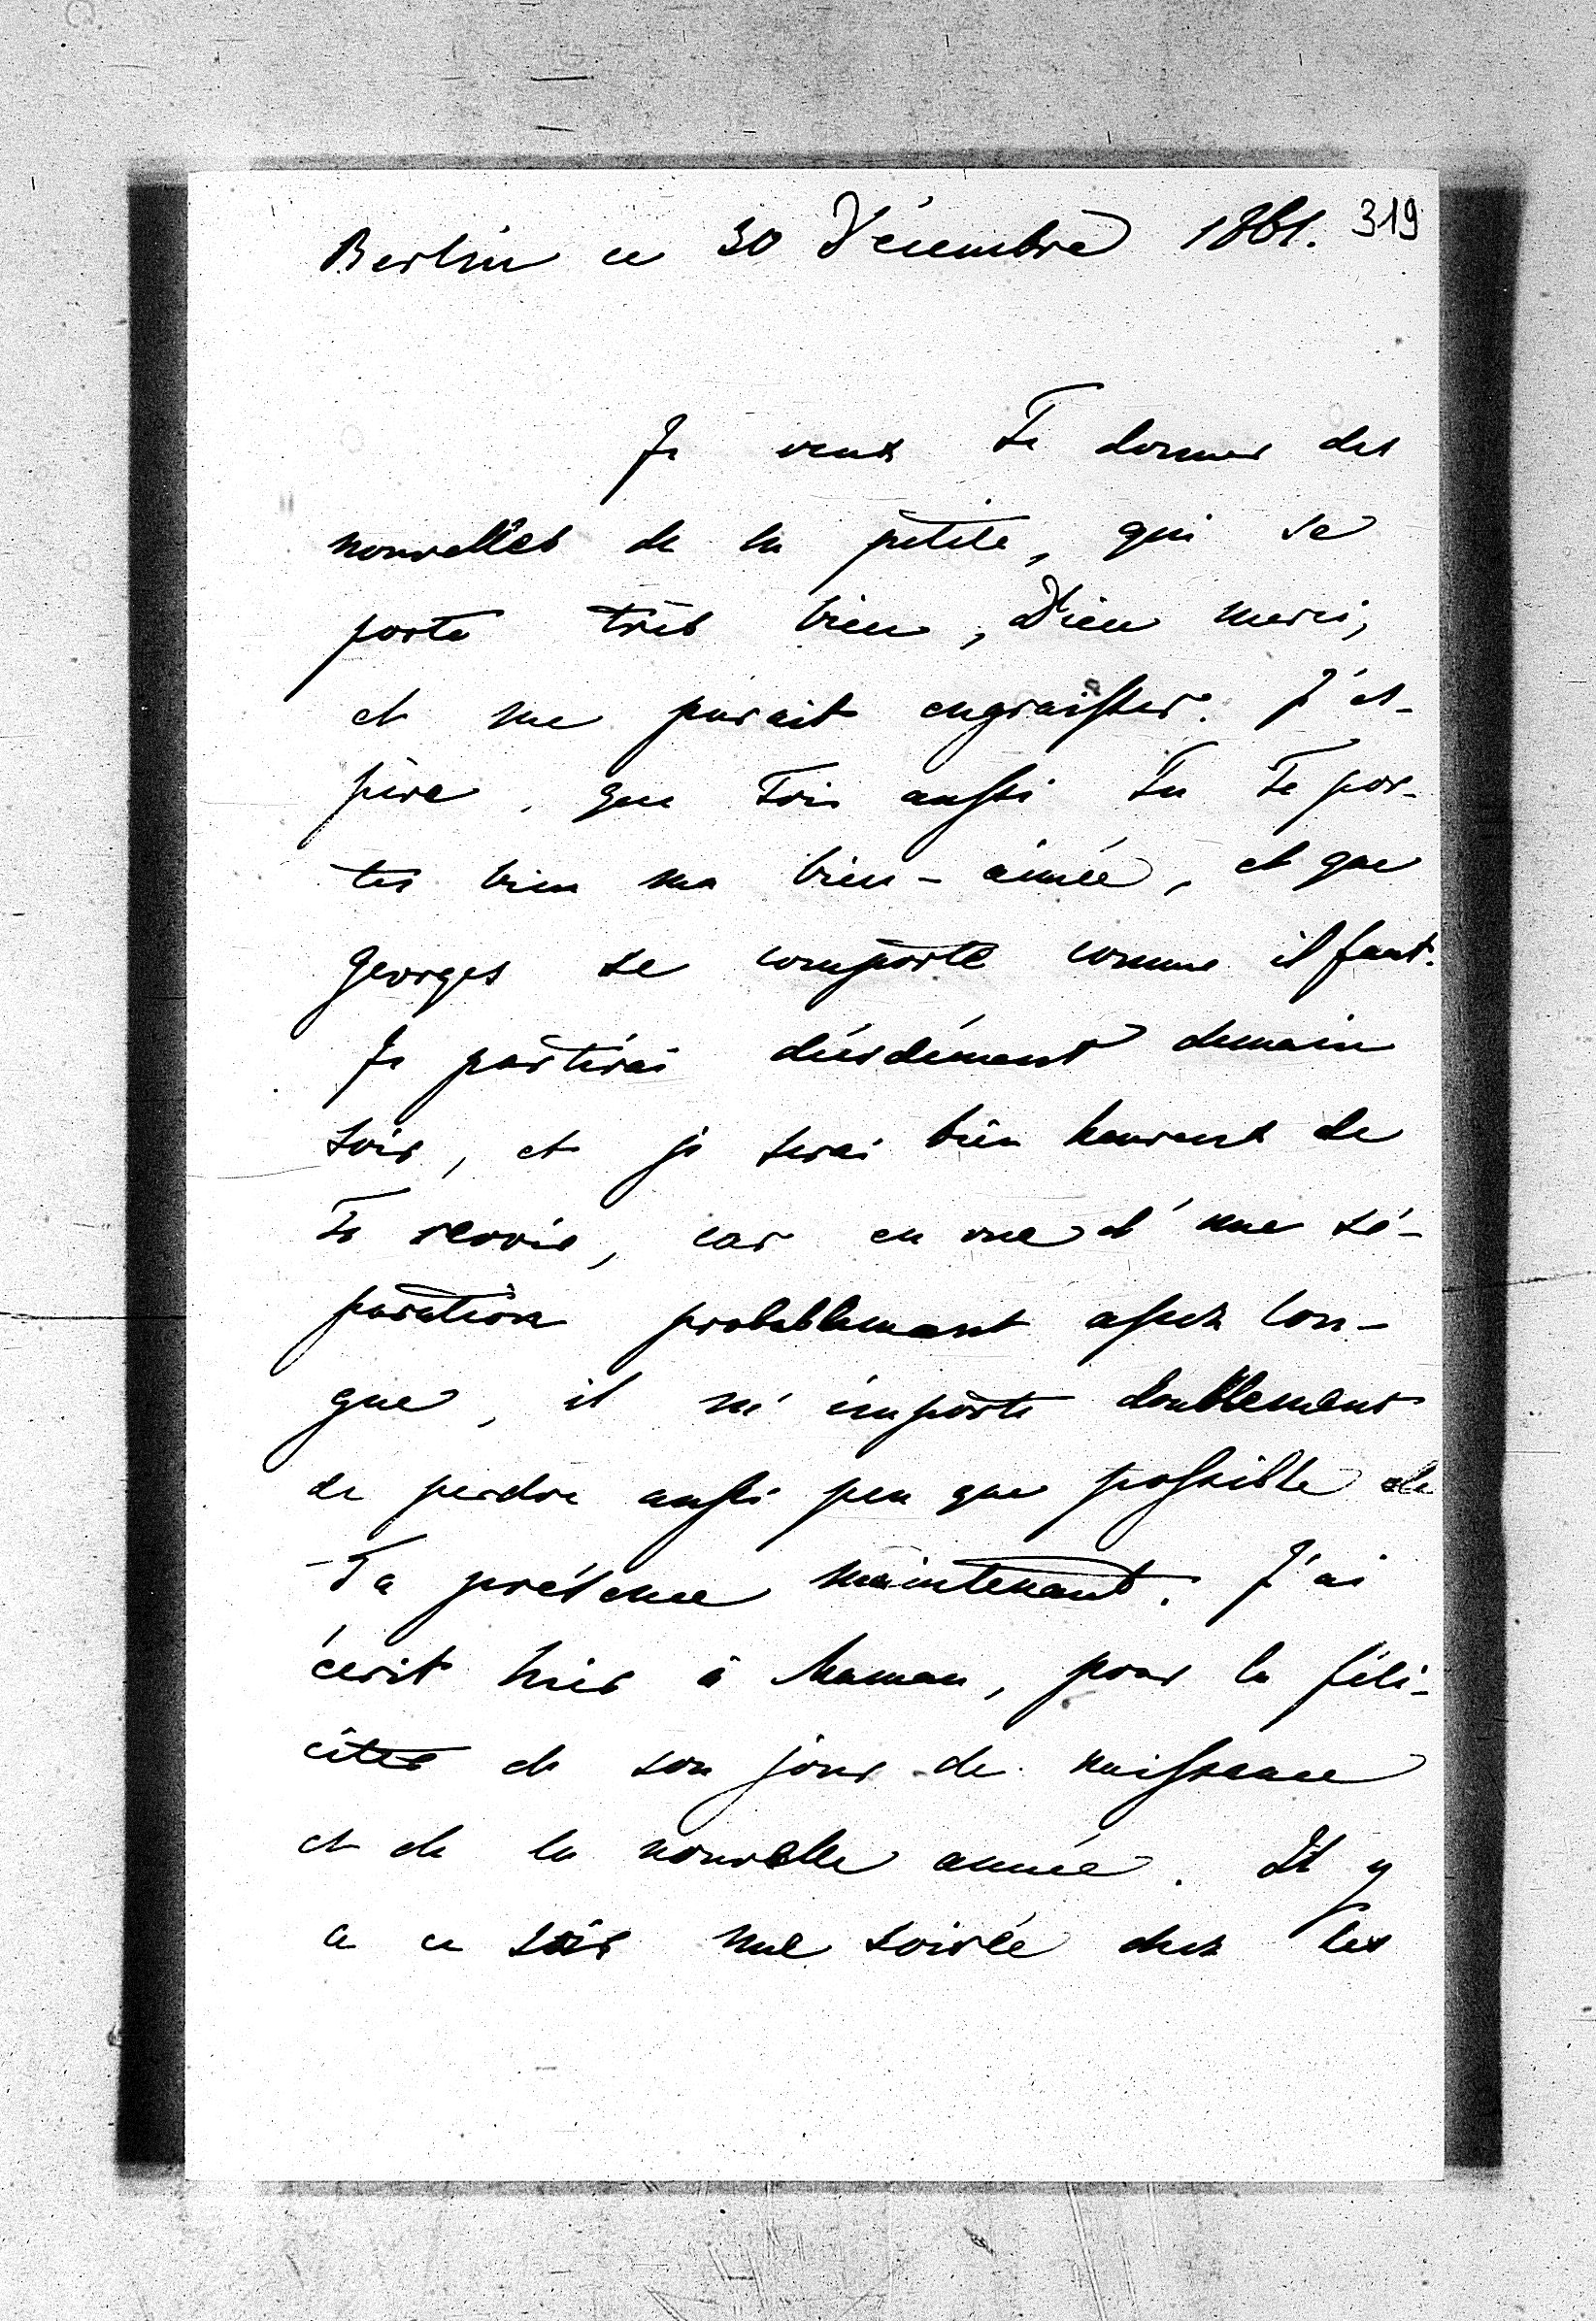 319
Berlin ce 30 Décembre 1861.
Je veux Te donner des
nouvelles de la petite, qui se
porte très bien, Dieu merci,
et me parait engraisser. J'es-
père, que Toi aussi Tu Te por-
tes bien ma bien-aimée, et que
Georges se comporte comme il faut.
Je partirai décidément demain
soir, et je serai bien heureux de
Te revoir, car en vue d'une sé-
paration probablement assez lon-
gue, il m'importe doublement
de perdre aussi peu que possible de
Ta présence maintenant. J'ai
écrit hier à Maman, pour la féli-
citer de son jour de naissance
et de la nouvelle année. Il y
a ce soir une soirée chez les